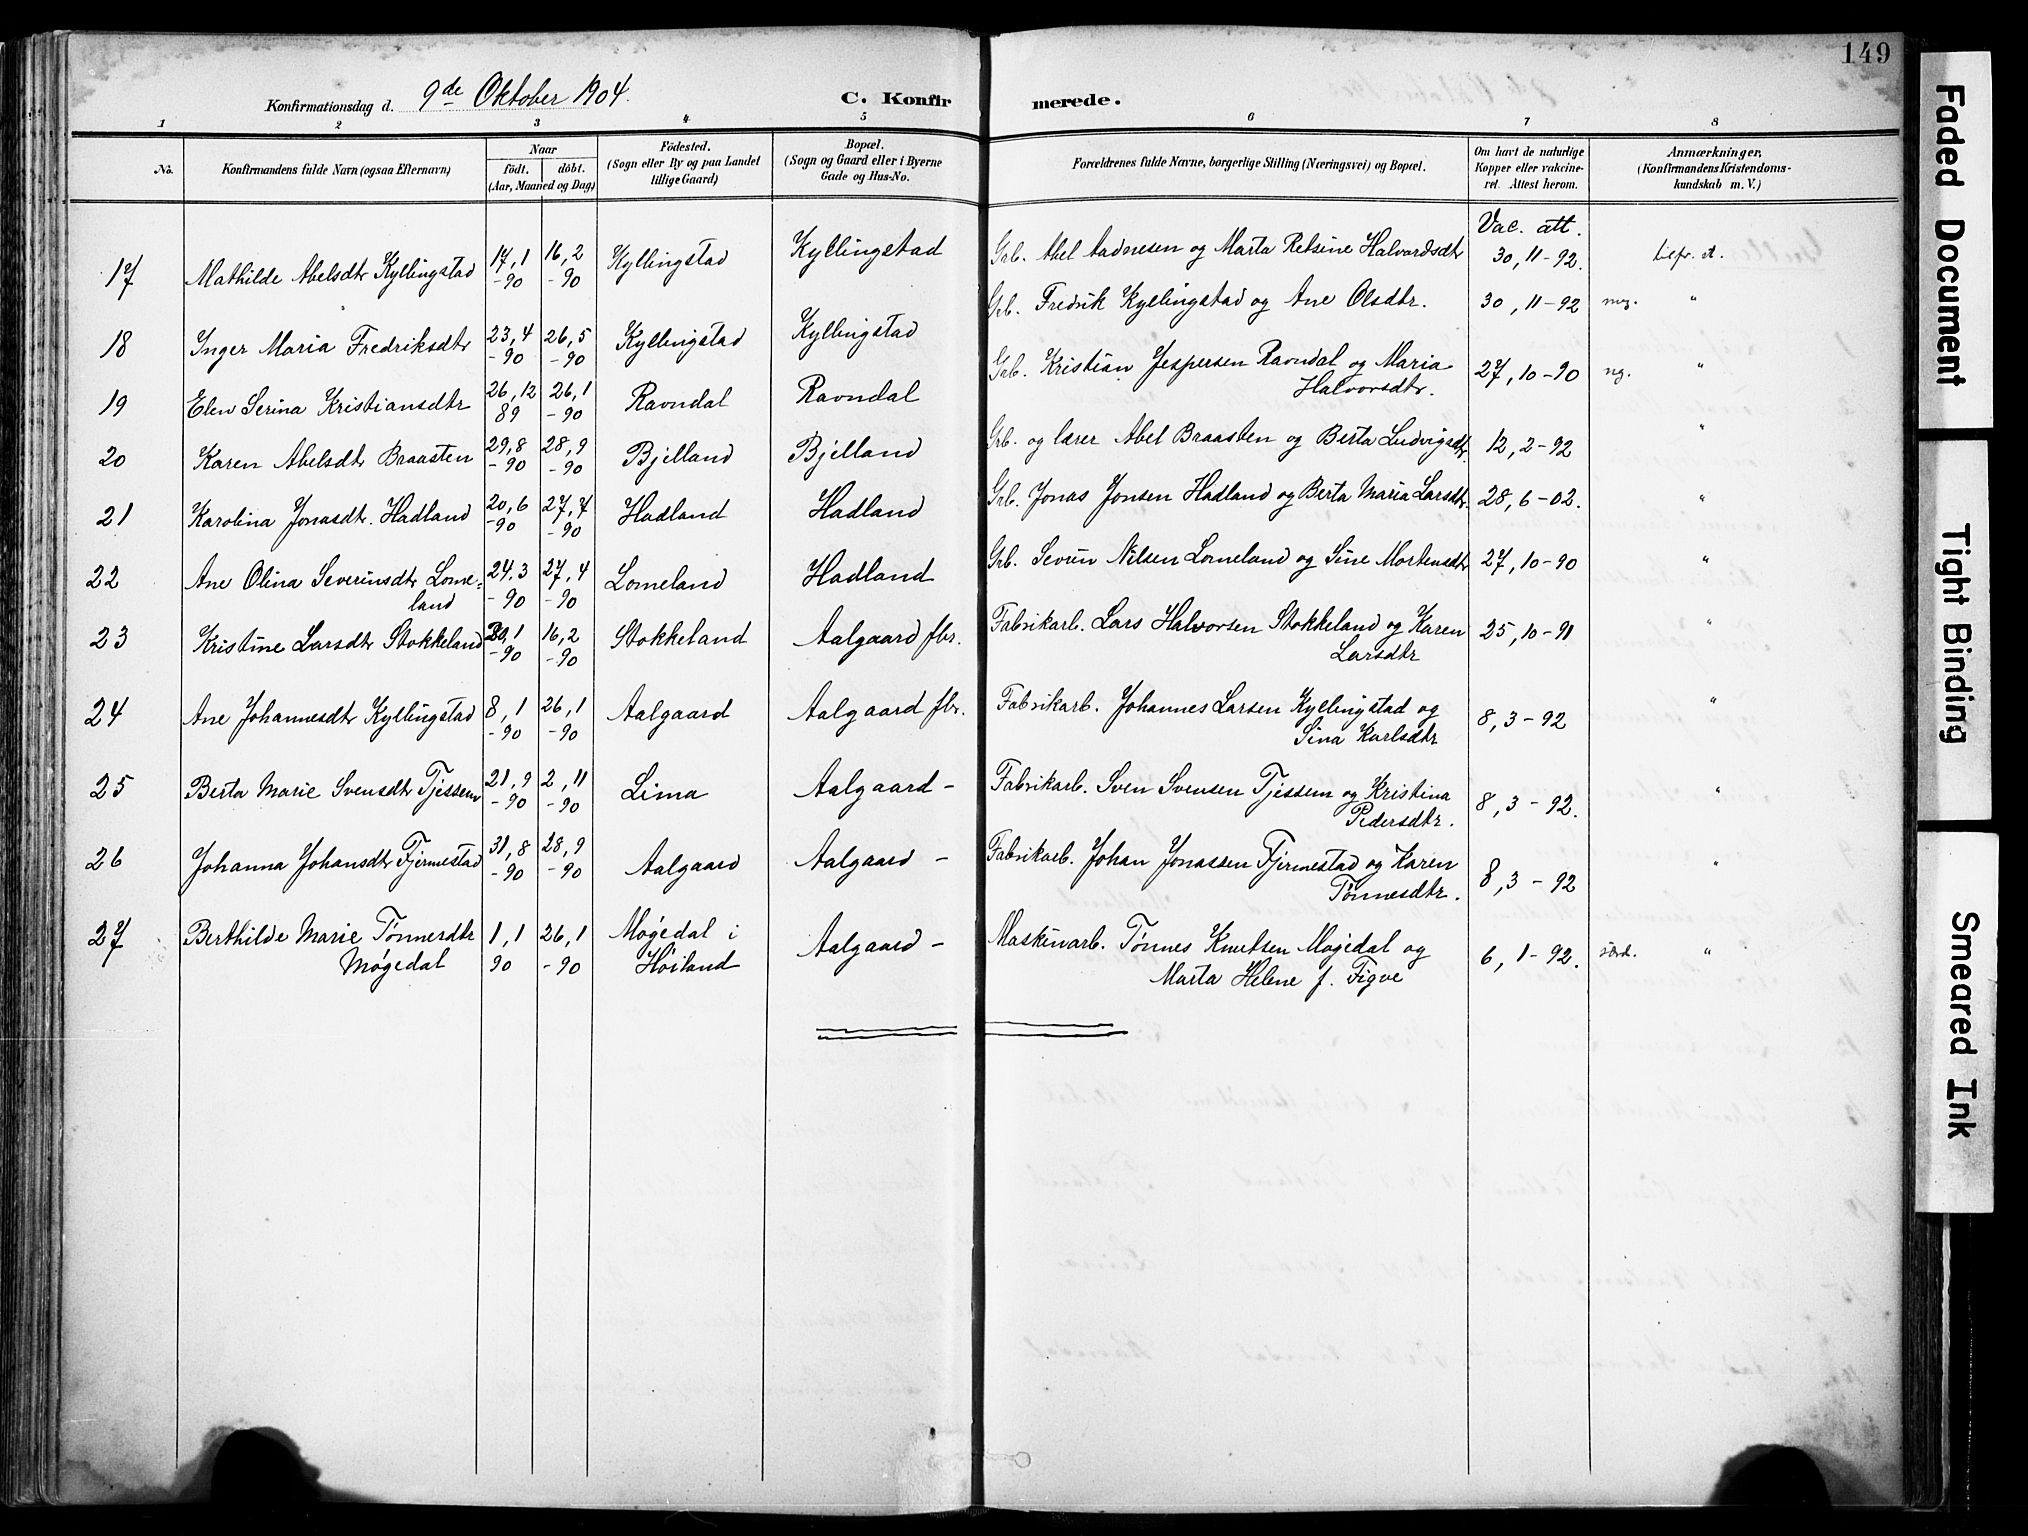 149
Konfirmationsdag d. 9de Oktober 1904.
C. Konfirmerede.
1 2 3 4 5 6 7 8
No.
Konfirmandens fulde Navn (ogsaa Efternavn)
Naar
födt. döbt.
(Aar, Maaned og Dag)
Födested.
(Sogn eller By og paa Landet
tillige Gaard)
Bopæl.
(Sogn og Gaard eller i Byerne
Gade og Hus-No.
Forældrenes fulde Navne, borgerlige Stilling (Næringsvei) og Bopæl.
Om havt de naturlige
Kopper eller vakcine-
ret. Attest herom.
Anmærkninger,
(Konfirmandens Kristendoms-
kundskab m. V.)
Vac. att.
17 Mathilde Abelsdtr Kyllingstad 17,1 -90 16,2 -90 Kyllingstad Kyllingstad Grb. Abel Aadnesen og Marta Retsine Halvardsdtr 30,11-92. Tilfr. st.
18 Inger Maria Fredriksdtr 23,4 -90 26,5 -90 Kyllingstad Kyllingstad Grb. Fredrik Kyllingstad og Ane Olsdtr. 30,11-92 meg. "
19 Elen Serina Kristiansdtr 26,12 89 26,1 -90 Ravndal Ravndal Grb. Kristian Jespersen Ravndal og Maria
Halvorsdtr. 27,10-90 ng. "
20 Karen Abelsdtr Braasten 29,8 -90 28,9 -90 Bjelland Bjelland Grb. og lærer Abel Braasten og Berta Ludvigsdtr. 12,2-92 "
21 Karolina Jonasdtr. Hadland 20,6 -90 27,4 -90 Hadland Hadland Grb. Jonas Jonsen Hadland og Berta Maria Larsdtr. 28,6-02. "
22 Ane Olina Severinsdtr Lome-
land 24,3 -90 27,4 -90 Lomeland Hadland Grb. Sevrin Nilsen Lomeland og Sine Mortensdtr 27,10-90 "
23 Kristine Larsdtr Stokkeland 20,1 -90 16,2 -90 Stokkeland Aalgaard fbr. Fabrikarb. Lars Halvorsen Stokkeland og Karen
Larsdtr 25,10-91 "
24 Ane Johannesdtr Kyllingstad 8,1 -90 26,1 -90 Aalgaard Aalgaard fbr. Fabrikarb. Johannes Larsen Kyllingstad og
Sina Karlsdtr 8,3-92 "
25 Berta Marie Svensdtr Tjessem 21,9 -90 2,11 -90 Lima Aalgaard - Fabrikarb. Sven Svensen Tjessem og Kristina
Pedersdtr. 8,3-92. "
26 Johanna Johansdtr Fjermestad 31,8 -90 28,9 -90 Aalgaard Aalgaard - Fabrikarb. Johan Jonassen Fjermestad og Karen
Tønnesdtr. 8,3-92 "
27 Berthilde Marie Tønnerdtr
Møgedal 1,1 90 26,1 -90 Møgedal i
Høiland Aalgaard - Maskinarb. Tønnes Knutsen Møgedal og
Marta Helene f. Figve 6,1-92. særd. "
Faded Document
Tight Binding
Smeared Ink